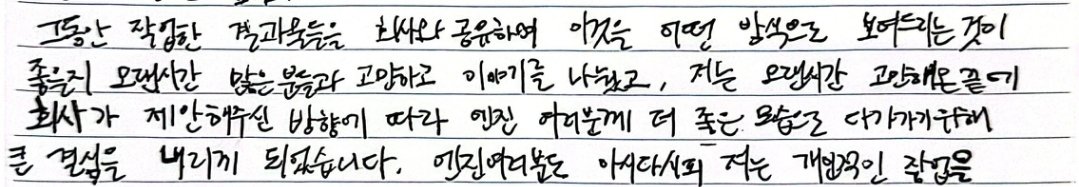 그동안 작업한 결과물들을 회사와 공유하며 이것을 어떤 방식으로 보여드리는 것이
좋을지 오랜시간 많은 분들과 고민하고 이야기를 나눴고, 저는 오랜시간 고민해온 끝에
회사가 제안해주신 방향에 따라 엔진 여러분께 더 좋은 모습으로 다가가기위해
큰 결심을 내리게 되었습니다. 엔진여러분도 아시다시피 저는 개인적인 작업을